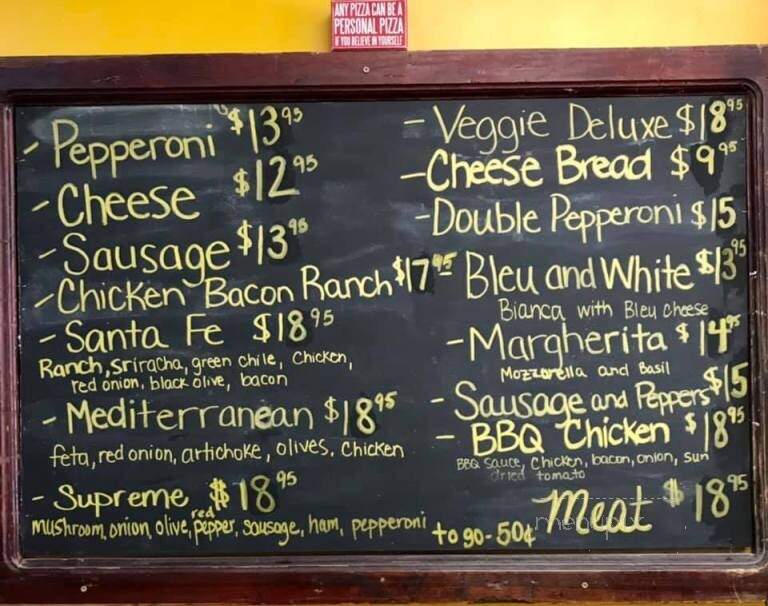 ANY PIZZA CAN BE A
PERSONAL PIZZA
IF YOU BELIEVE IN YOURSELF
- Pepperoni $13.95
- Cheese $12.95
- Sausage $13.95
- Chicken Bacon Ranch $17.95
- Santa Fe $18.95
Ranch, Sriracha, green chile, Chicken,
red onion, black olive, bacon
- Mediterranean $18.95
feta, red onion, artichoke, olives, Chicken
- Supreme $18.95
mushroom, onion, olive, red pepper, sausage, ham, pepperoni
- Veggie Deluxe $18.95
- Cheese Bread $9.95
- Double Pepperoni $15
Bleu and White $13.95
Bianca with Bleu cheese
- Margherita $14.95
Mozzarella and Basil
- Sausage and Peppers $15
- BBQ Chicken $18.95
BBQ Sauce, Chicken, bacon, onion, sun
dried tomato
Meat $18.95
to go - 50¢